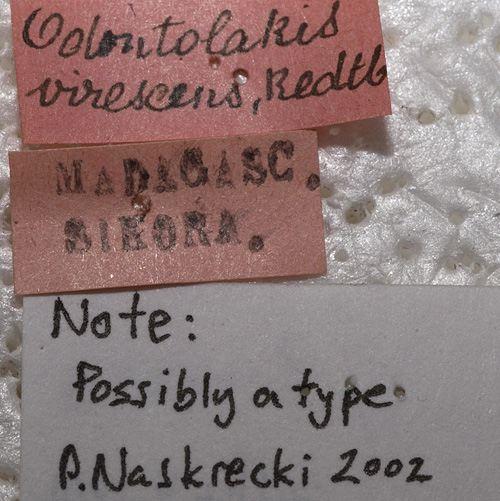 Odontolakis
virescens, Redtb
MADAGASC.
SIKORA.
Note:
Possibly a type
P. Naskrecki 2002